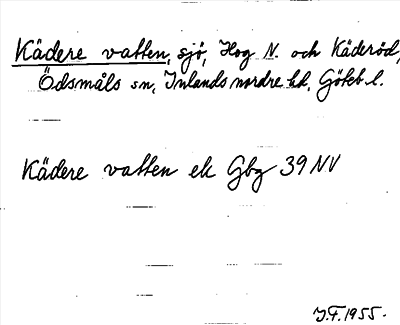 Kädere vatten, sjö, Hog N. och Käderöd,
Ödsmåls sn, Inlands nordre hd, Göteb. l.
Kädere vatten ek Gbg 39 NV
J.F. 1955.